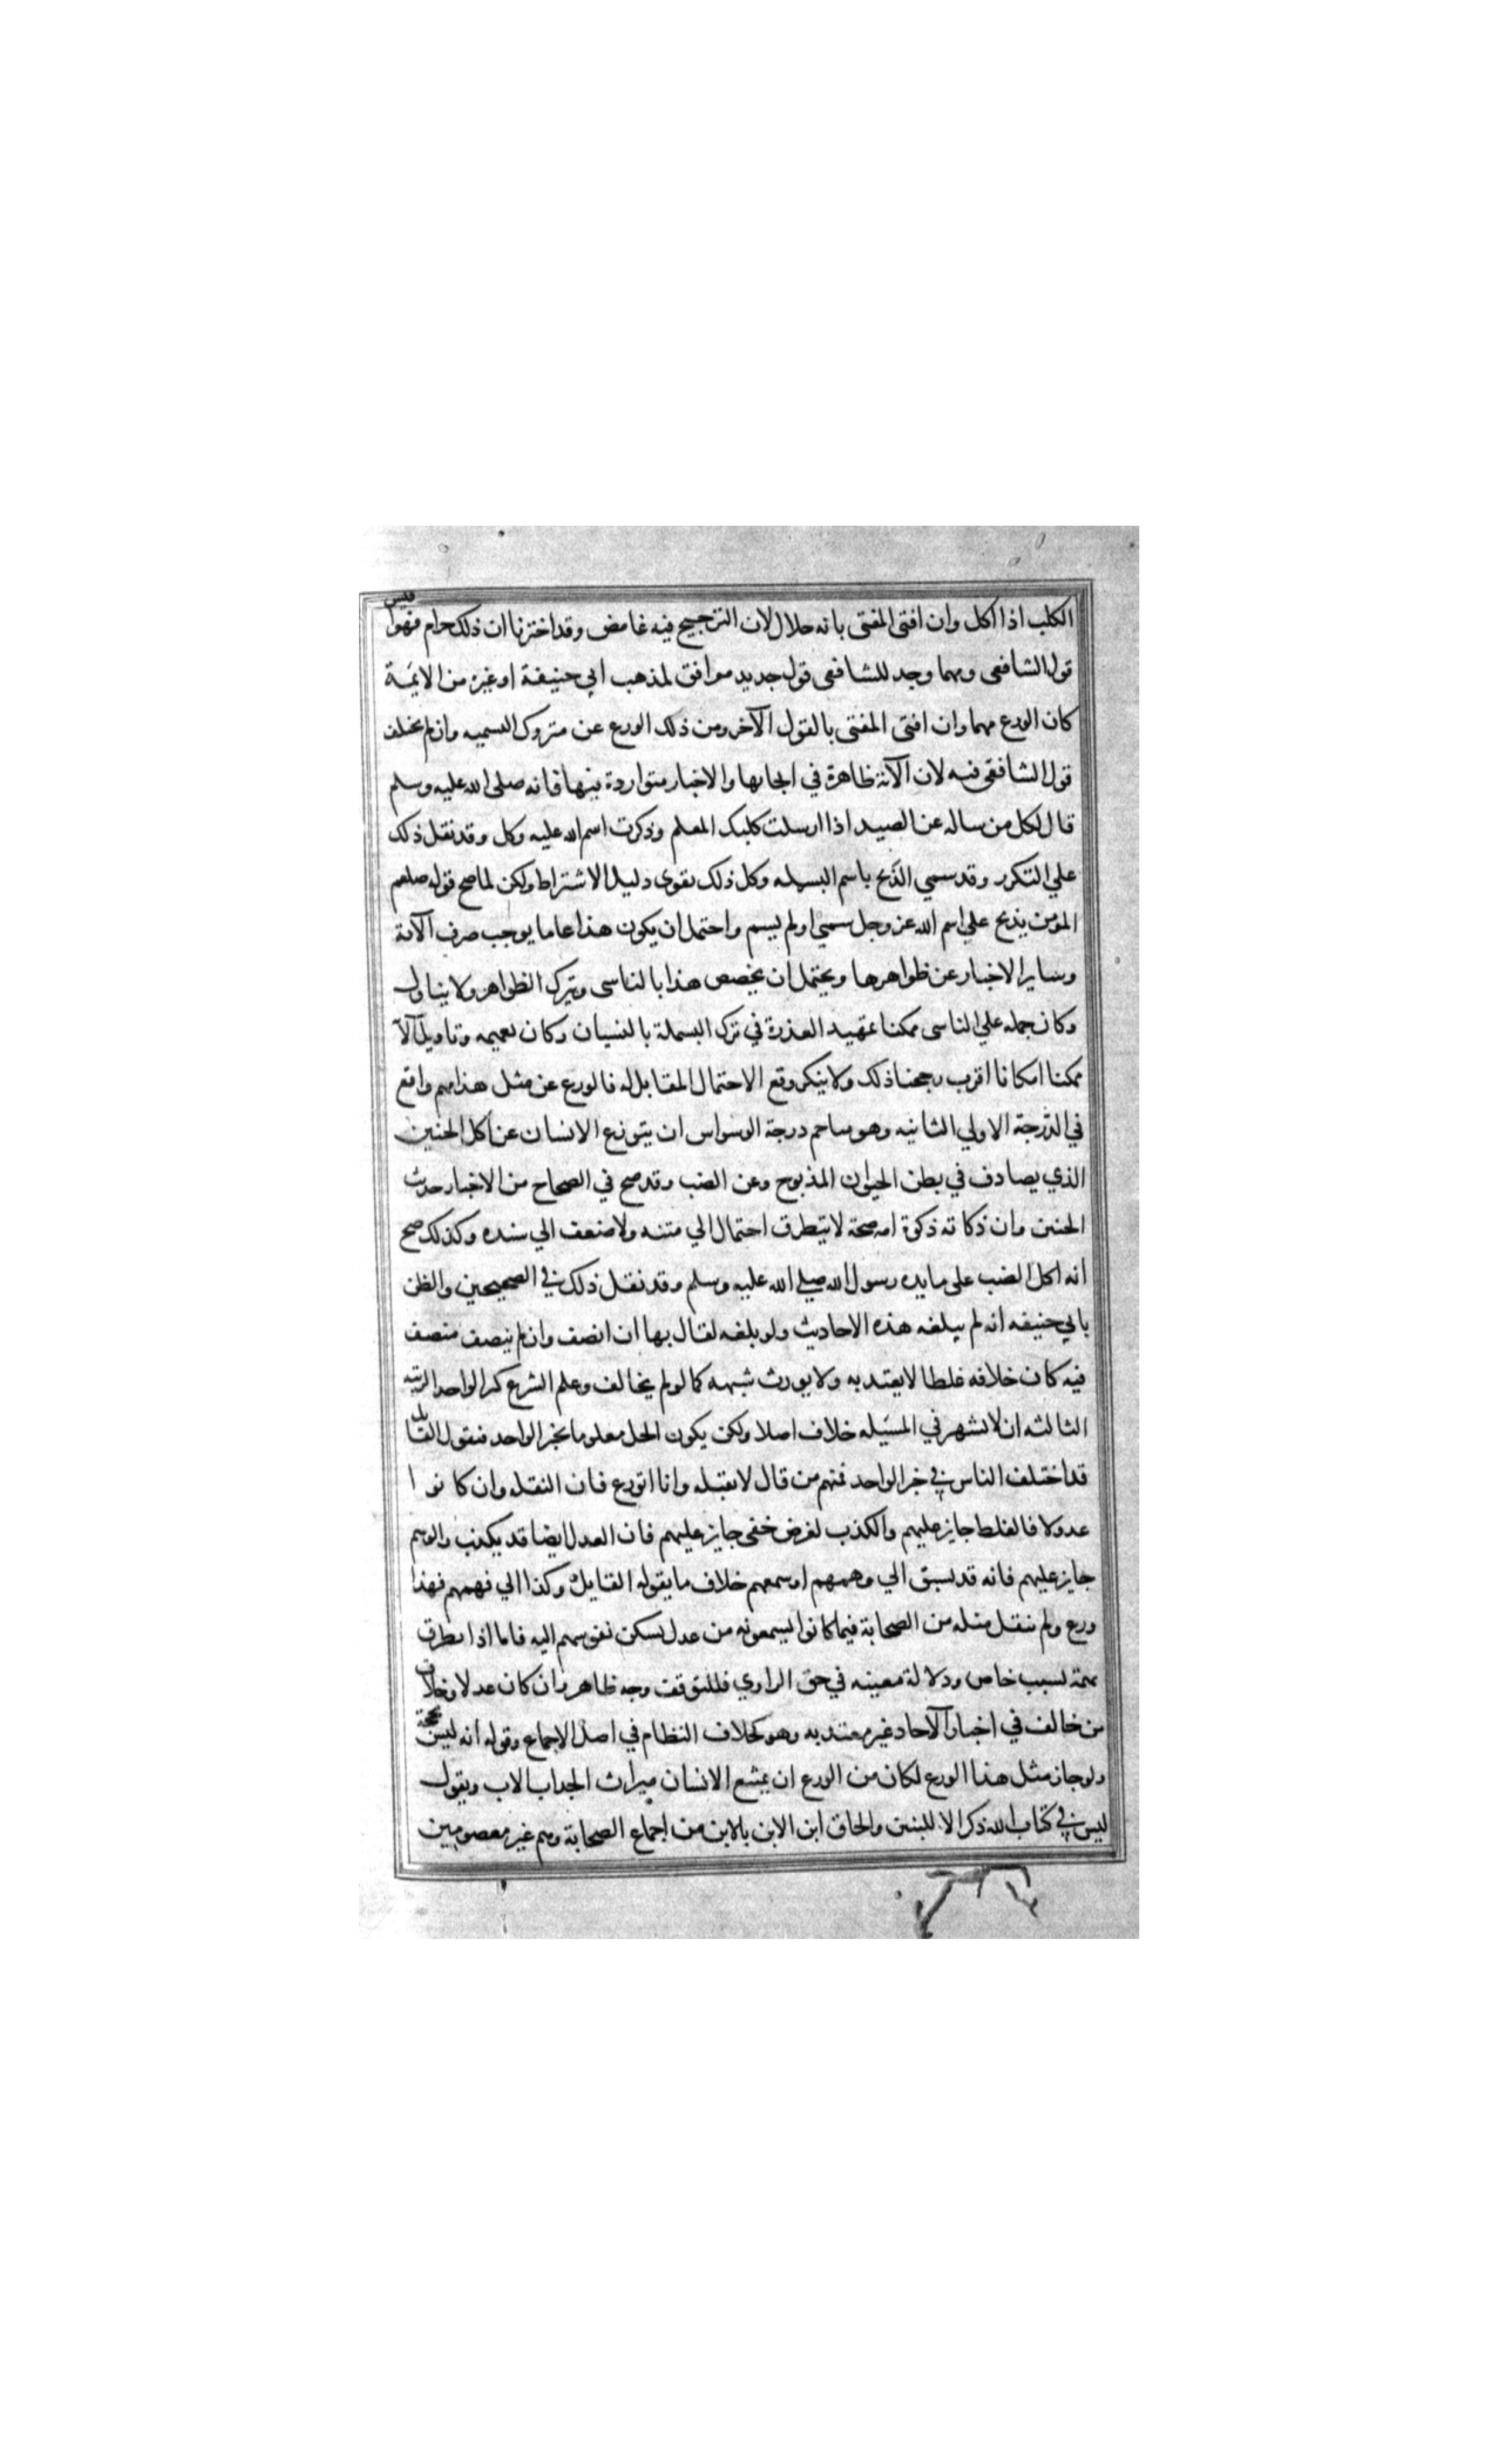 الكلب اذا اكل وان افتى المفتى بانه حلال لان الترجيح فيه غامض وقد اخترنا ان ذلك حرام فهوا قيس
قول الشافعى ومهما وجد للشافعى قول جديد موافق لمذهب ابي حنيفة او غيره من الايمة
كان الورع مهما وان افتى المفتى بالقول الآخر ومن ذلك الورع عن متروك التسميه وان لم يختلف
قول الشافعى فيه لان الآية ظاهرة في ايجابها والاخبار متواردة بينها فانه صلى الله عليه وسلم
قال لكل من ساله عن الصيد اذا ارسلت كلبك المعلم وذكرت اسم الله عليه وكل وقد نقل ذلك
علي التكرر وقد سمي الذبح باسم البسمله وكل ذلك يقوى دليل الاشتراط ولكن لما صح قوله صلعم
المؤمن يذبح علي اسم الله عز وجل سمي او لم يسم واحتمل ان يكون هذا عاما يوجب صرف الآية
وساير الاخبار عن ظواهرها ويحتمل ان يخصص هذا بالناسى ويترك الظواهر ولا يتاول
وكان حمله علي الناسى ممكنا تمهيد العذرة في ترك البسملة بالنسيان وكان تعميمه وتاويل الآ
ممكنا امكانا اقرب رجحنا ذلك ولا ينكر وقع الاحتمال المقابل له فالورع عن مثل هذا مهم واقع
في الدرجة الاولي الثانيه وهو مباحم درجة الوسواس ان يتورع الانسان عن اكل الجنين
الذي يصادف في بطن الحيوان المذبوح وعن الضب وقد صح في الصحاح من الاخبار حديث
الجنين وان ذكاته ذكوة امه صحة لا يتطرق احتمال الي متنه ولا ضعف الي سنده وكذلك صح
انه اكل الضب على مايده رسول الله صلي الله عليه وسلم وقد نقل ذلك في الصحيحين والظن
بابي حنيفه انه لم يبلغه هذه الاحاديث ولو بلغه لقال بها ان انصف وان لم ينصف منصف
فيه كان خلافه غلطا لا يعتد به ولا يورث شبهه كما لو لم يخالف وعلم الشرع كر الواحد الرتبه
الثالثه ان لا تشهر في المسيله خلاف اصلا ولكن يكون الحل معلوما بخبر الواحد فيقول القايل
قد اختلف الناس في خبر الواحد فمنهم من قال لا يقبله وانا اتورع فان النقله وان كانوا
عدولا فالغلط جايز عليهم والكذب لغرض خفى جايز عليهم فان العدل ايضا قد يكذب والوهم
جايز عليهم فانه قد يسبق الي وهمهم او سمعهم خلاف ما يقوله القايل وكذا الي فهمهم فهذا
ورع ولم ينقل مثله من الصحابة فيما كانوا يسمعونه من عدل تسكن نفوسهم اليه فاما اذا تطرق
تهمة لسبب خاص ودلالة معينه في حق الراوي فللتوقف وجه ظاهر وان كان عدلا وخلاف
من خالف في اخبار الآحاد غير معتد به وهو كخلاف النظام في اصل الاجماع وقوله انه ليس بحجة
ولو جاز مثل هذا الورع لكان من الورع ان يمتنع الانسان ميراث الجداب الاب ويقول
ليس في كتاب الله ذكر الا للبنين والحاق ابن الابن بالابن من اجماع الصحابة وهم غير معصومين